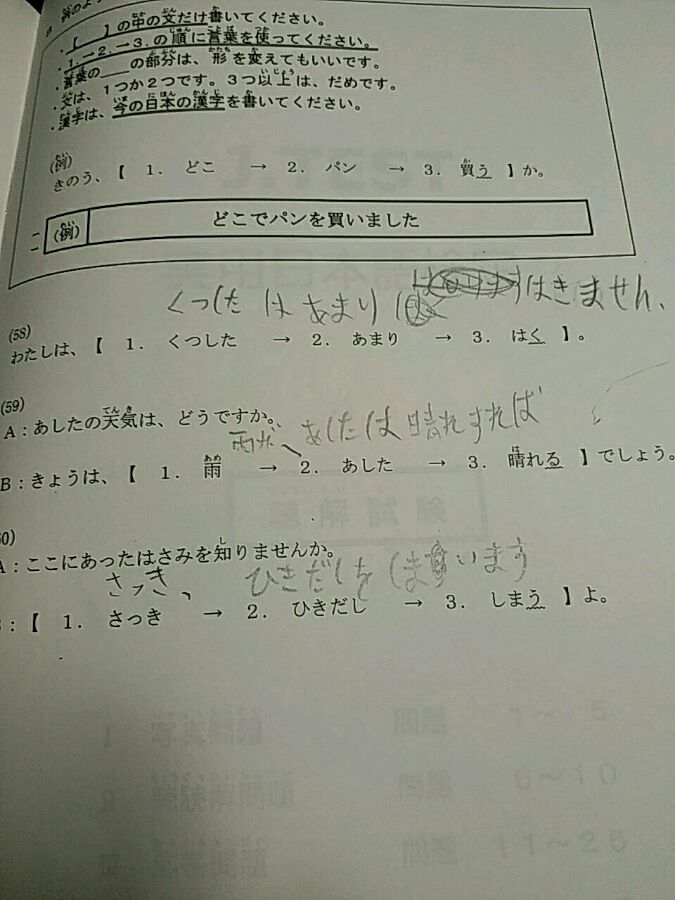 ・【 】の中の文だけ書いてください。
・1.→2.→3.の順に言葉を使ってください。
・言葉の＿＿の部分は、形を変えてもいいです。
・文は、1つか2つです。3つ以上は、だめです。
・漢字は、今の日本の漢字を書いてください。
(例)
きのう、【 1. どこ → 2. パン → 3. 買う 】か。
(例) どこでパンを買いました
くつしたはあまり はきません、
(58)
わたしは、【 1. くつした → 2. あまり → 3. はく 】。
(59)
A：あしたの天気は、どうですか。
雨が、あしたは晴れすれば
B：きょうは、【 1. 雨 → 2. あした → 3. 晴れる 】でしょう。
A：ここにあったはさみを知りませんか。
さっき、ひきだしを しまいます
：【 1. さっき → 2. ひきだし → 3. しまう 】よ。